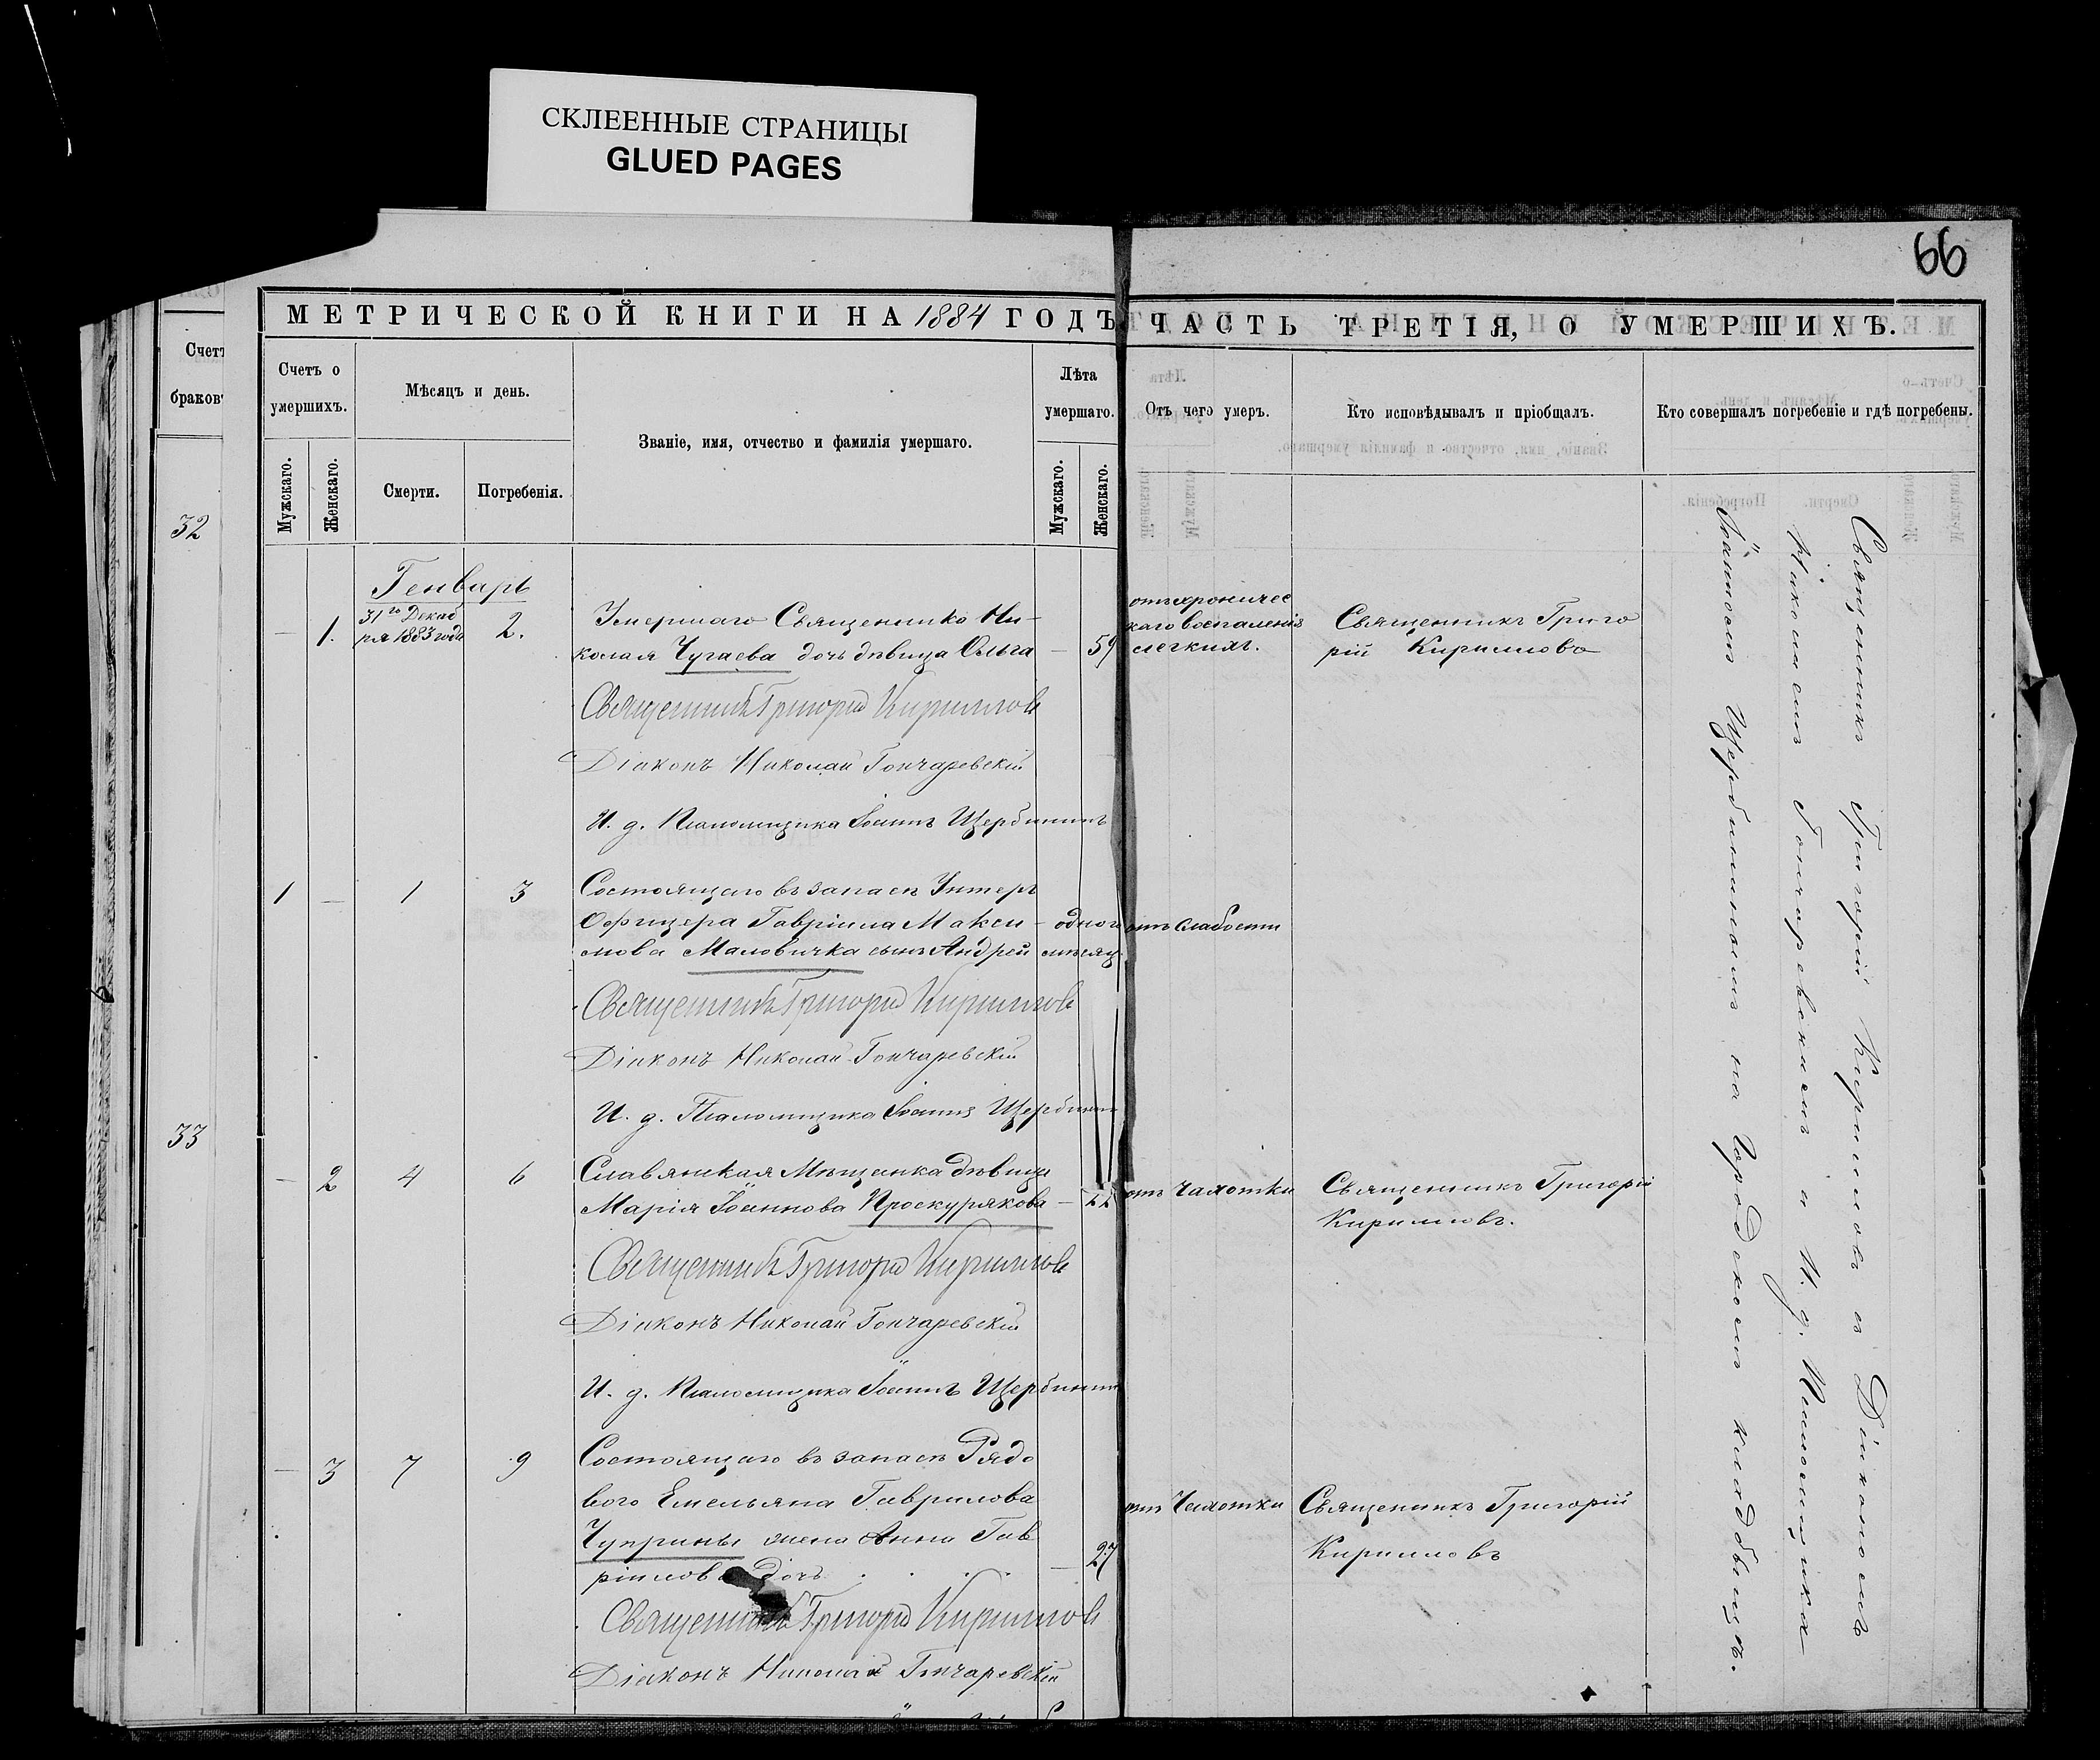 СКЛЕЕННЫЕ СТРАНИЦЫ
GLUED PAGES
66
МЕТРИЧЕСКОЙ КНИГИ НА 1884 ГОДЪ ЧАСТЬ ТРЕТІЯ, О УМЕРШИХЪ.
Счетъ
браковъ
32
33
Счетъ о
умершихъ.
Мужскаго.
Женскаго.
Мѣсяцъ и день.
Смерти.
Погребенія.
Званіе, имя, отчество и фамилія умершаго.
Лѣта
умершаго.
Мужскаго.
Женскаго.
Отъ чего умеръ.
Кто исповѣдывалъ и пріобщалъ.
Кто совершалъ погребеніе и гдѣ погребены.
Генварь
— 1. 31го Декаб
ря 1883 года 2.
Умершаго Священника Ни-
колая Чугаева дочь дѣвица Ольга — 59
отъ хроничес
каго воспаленія
легкихъ.
Священникъ Григо
рій Кирилловъ
Священникъ Григорій Кирилловъ
Діаконъ Николай Гончаревскій
И. д. Псаломщика Іоаннъ Щербининъ
1 — 1 3
Состоящаго въ запасѣ Унтеръ
Офицера Гавріила Макси- одного
мова Маловичка сынъ Андрей мѣсяц
отъ слабости
Священникъ Григорій Кирилловъ
Діаконъ Николай Гончаревскій
И. д. Псаломщика Іоаннъ Щербининъ
— 2 4 6
Славянская Мѣщанка дѣвица
Марія Іоаннова Проскурякова — 22
отъ Чахотки
Священникъ Григорій
Кирилловъ.
Священникъ Григорій Кирилловъ
Діаконъ Николай Гончаревскій
И. д. Псаломщика Іоаннъ Щербининъ
— 3 7 9
Состоящаго въ запасѣ Рядо
вого Емельяна Гаврилова
Чуприны жена Анна Гав
ріилова дочь — 27
отъ Чахотки
Священникъ Григорій
Кирилловъ
Священникъ Григорій Кирилловъ
Діаконъ Николай Гончаревскій
Священникъ Григорій Кирилловъ съ Діакономъ
Николаемъ Гончаревскимъ и И. д. Псаломщика
Іоанномъ Щербининымъ на Городскомъ кладбищѣ.